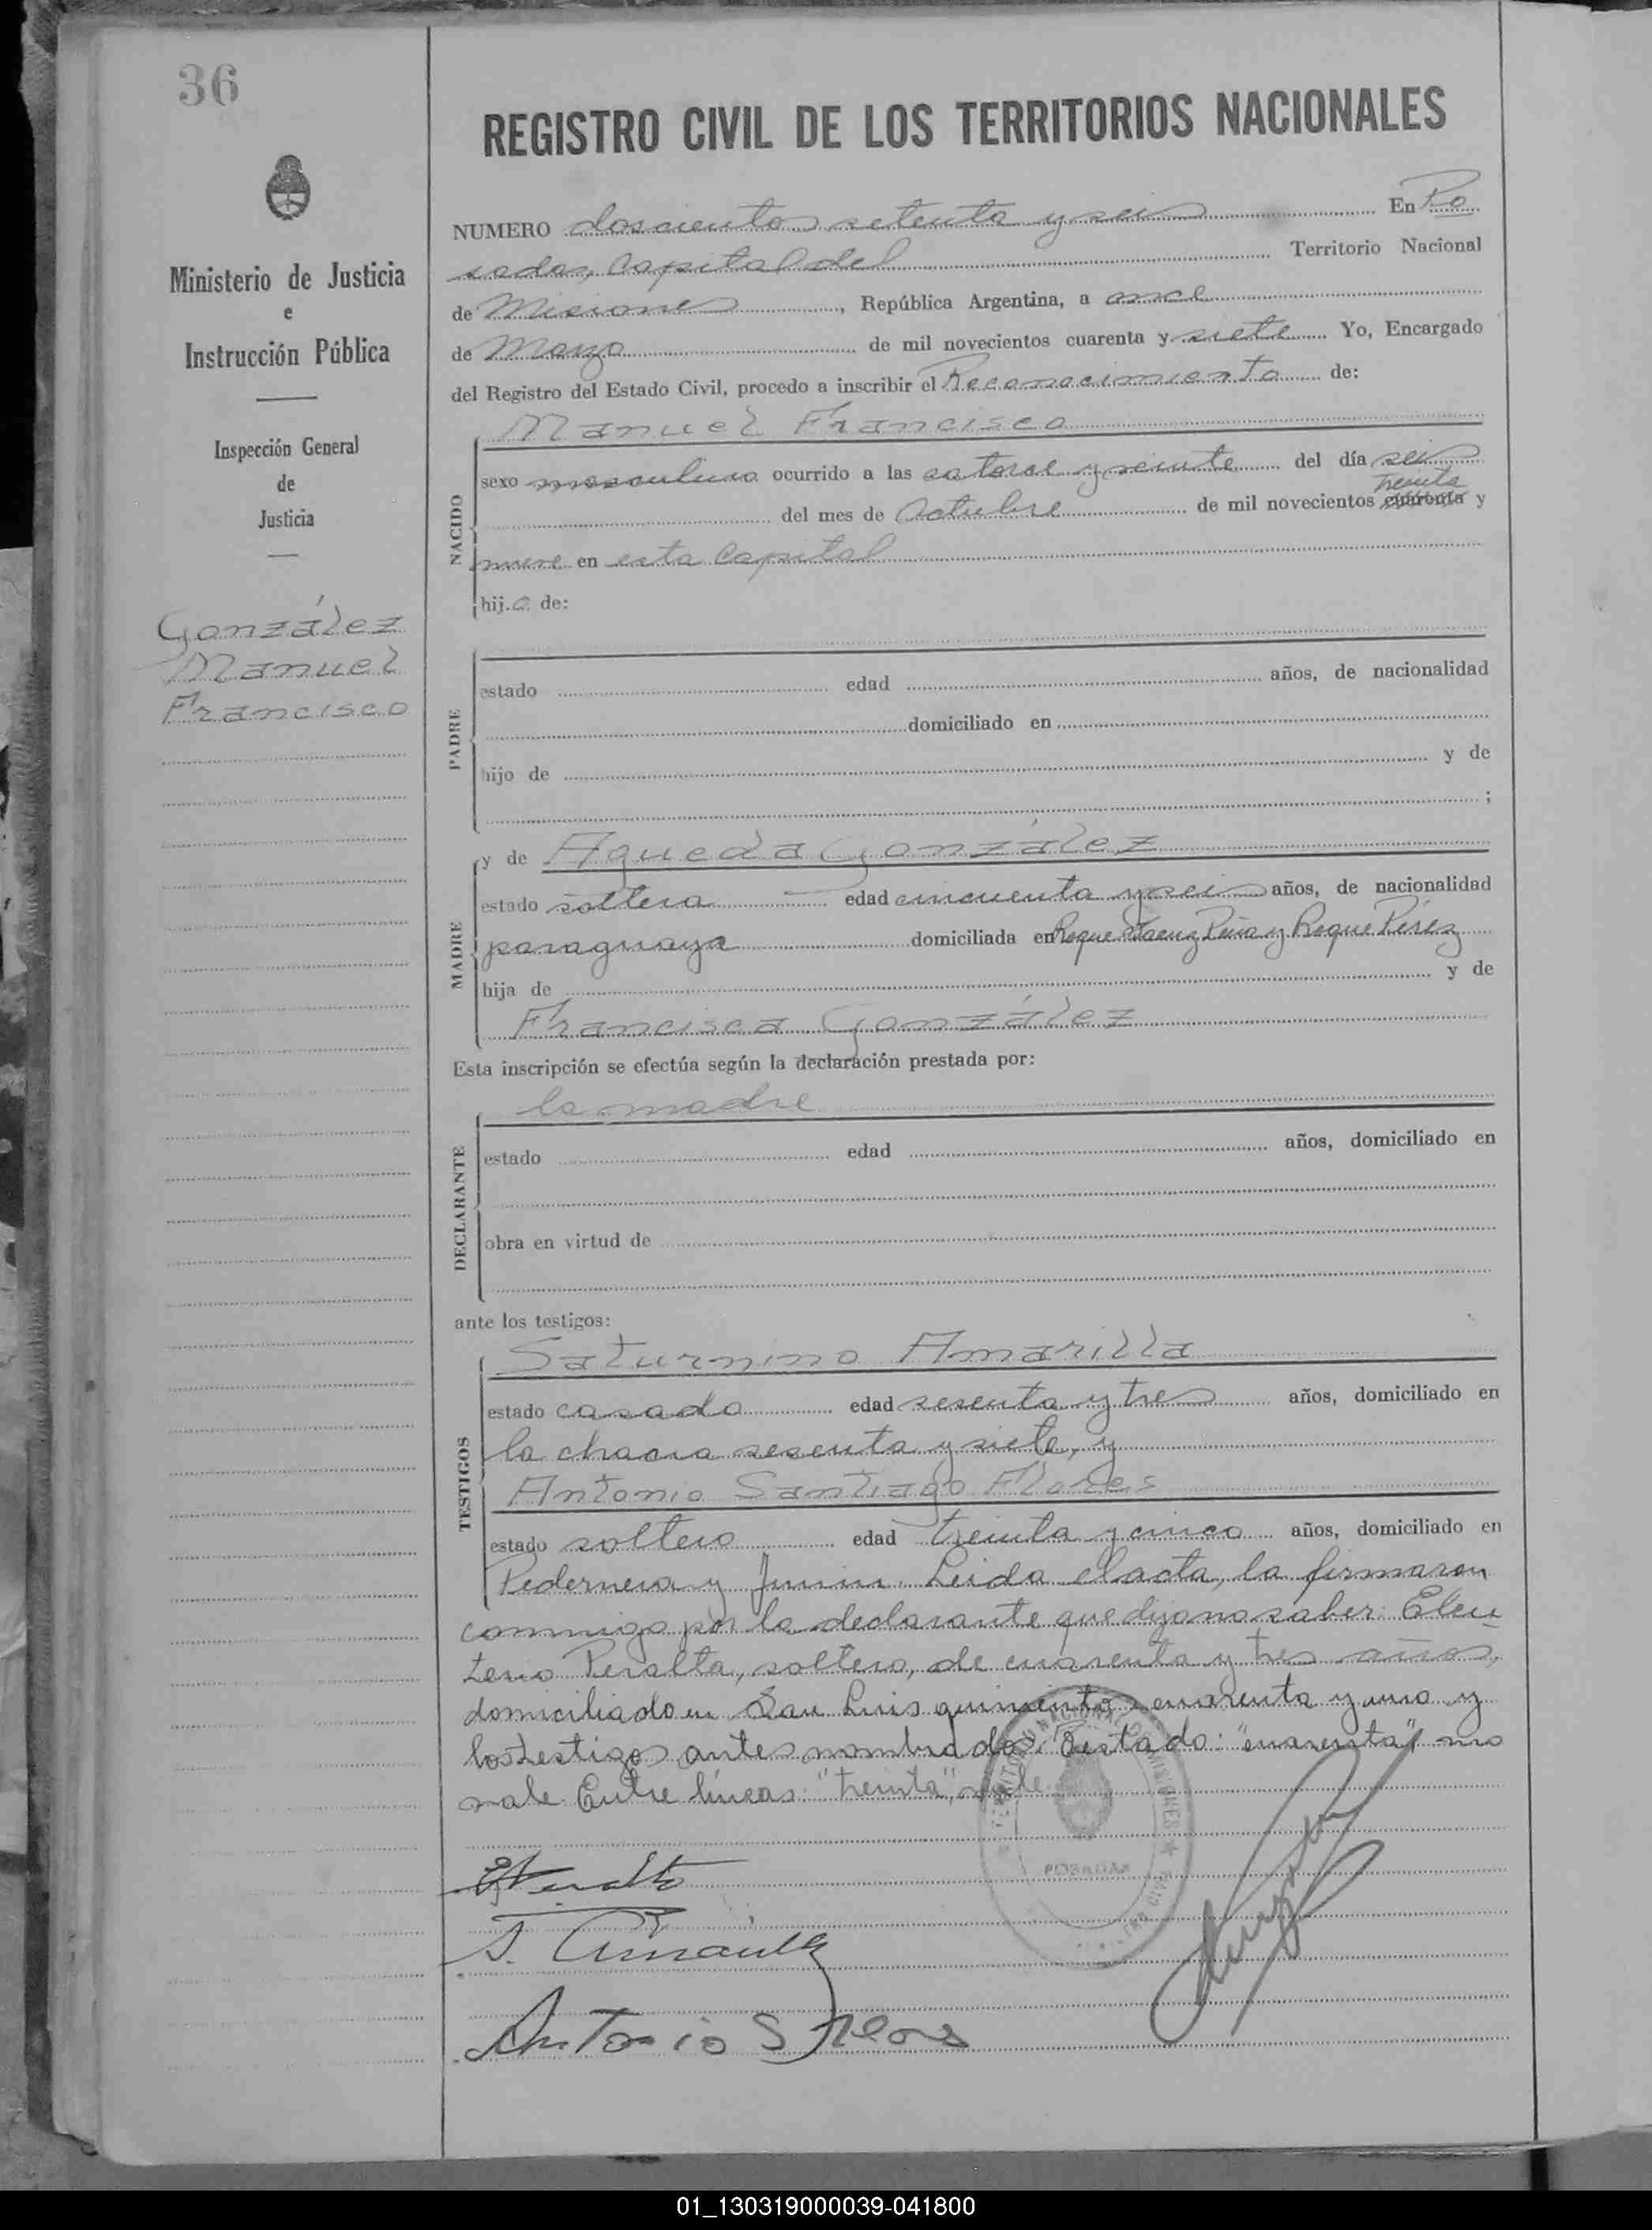 36
REGISTRO CIVIL DE LOS TERRITORIOS NACIONALES
Ministerio de Justicia
e
Instrucción Pública
Inspección General
de
Justicia
González
Manuel
Francisco
NUMERO doscientos setenta y seis En Po
sadas, Capital del Territorio Nacional
de Misiones, República Argentina, a once
de Marzo de mil novecientos cuarenta y siete Yo, Encargado
del Registro del Estado Civil, procedo a inscribir el Reconocimiento de:
Manuel Francisco
NACIDO
sexo masculino ocurrido a las catorce y veinte del día seis
treinta
del mes de Octubre de mil novecientos cuarenta y
nueve en esta Capital
hijo de:
PADRE
estado edad años, de nacionalidad
domiciliado en
hijo de y de
;
MADRE
y de Agueda González
estado soltera edad cincuenta y seis años, de nacionalidad
paraguaya domiciliada en Roque Saenz Peña y Roque Pérez
hija de y de
Francisca González
Esta inscripción se efectúa según la declaración prestada por:
la madre
DECLARANTE
estado edad años, domiciliado en
obra en virtud de
ante los testigos:
TESTIGOS
Saturnino Amarilla
estado casado edad sesenta y tres años, domiciliado en
la chacra sesenta y siete, y
Antonio Santiago Flores
estado soltero edad treinta y cinco años, domiciliado en
Pedernera y Junin. Leida el acta, la firmaron
conmigo por la declarante que dijo no saber: Eleu
terio Peralta, soltero, de cuarenta y tres años,
domiciliado en San Luis quinientos cuarenta y uno y
los testigos antes nombrados. Testado: "cuarenta" no
vale. Entre líneas: "treinta", vale.
POSADAS
MISIONES
Antonio S Flores
01_130319000039-041800